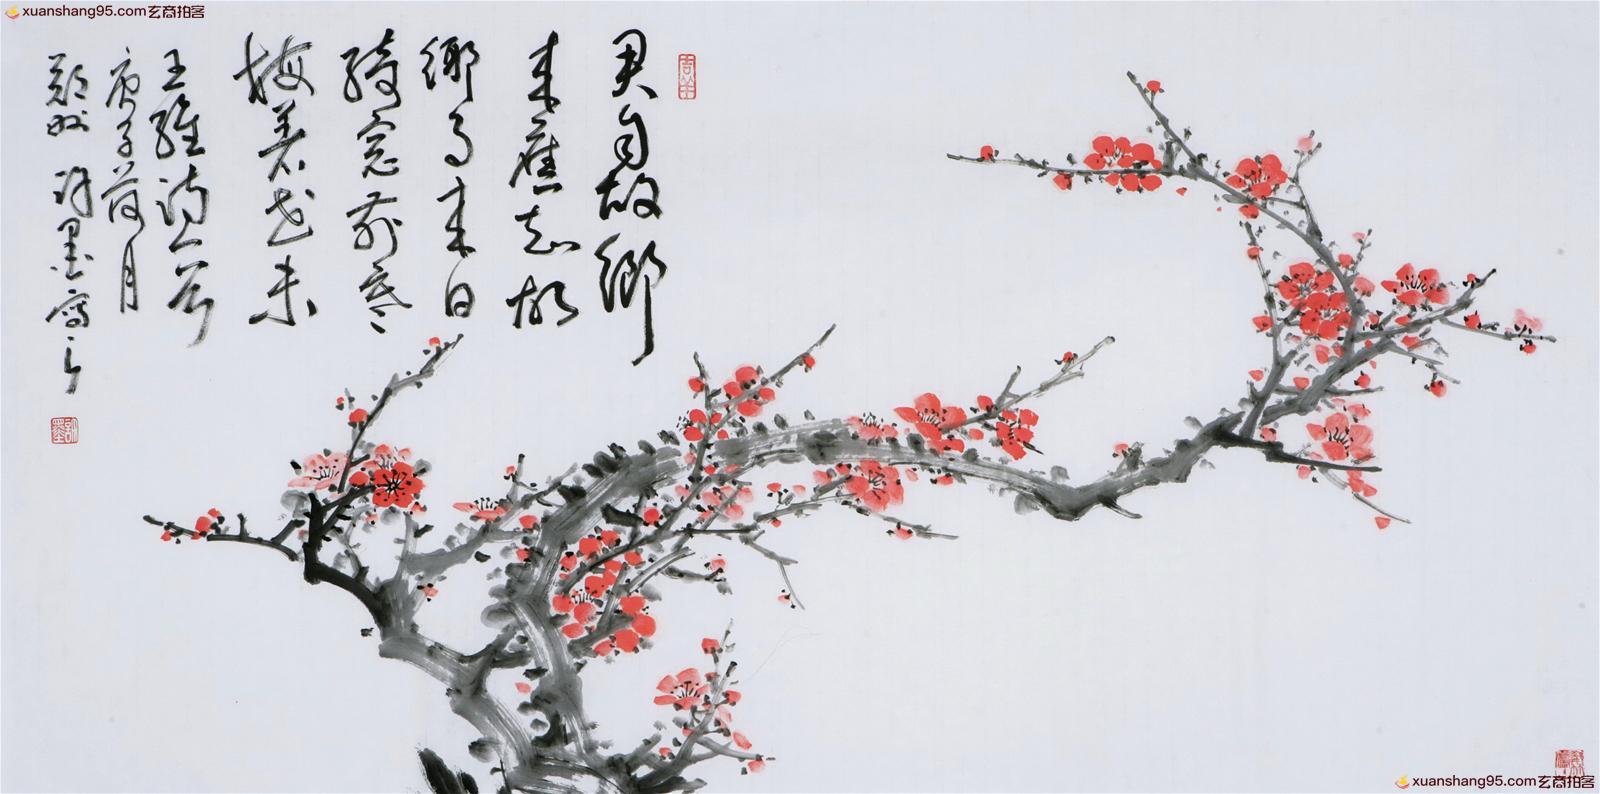 xuanshang95.com玄商拍客
吉羊
君自故鄉
来應知故
鄉事来日
綺窓前寒
梅着花未
王維詩一首
庚子荷月
鄭州 許墨寫之
許墨
xuanshang95.com玄商拍客